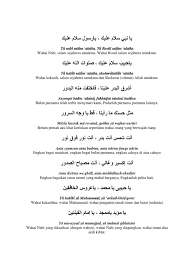 يا نبي سلام عليك ، يارسول سلام عليك
Yâ nabî salâm 'alaika, Yâ Rosûl salâm 'alaika
Wahai Nabi, salam sejahtera untukmu. Wahai Rosul salam sejahtera untukmu
ياحبيب سلام عليك ، صلوات الله عليك
Yâ habîb salâm 'alaika, sholawâtullâh 'alaika
Wahai kekasih, salam sejahtera untukmu dan Sholawat (rahmat) Allah untukmu
أشرق البدر علينا ، فاختفت منه البدور
Asyroqol badru 'alainâ, fakhtafat minhul budûru
Bulan purnama telah terbit menyinari kami, Pudarlah purnama-purnama lainnya
مثل حسنك ما رأينا ، قط يا وجه السرور
Mitsla husnik mâ ro-ainâ, qoththu yâ wajhas-surûri
Belum pernah aku lihat keelokan sepertimu wahai orang yang berwajah riang
أنت شمس أنت بدر ، أنت نور فوق نور
Anta syamsun anta badrun, anta nûrun fauqo nûrin
Engkau bagai matahari, engkau bagai bulan purnama, engkau cahaya di atas cahaya
أنت إكسير وغالي ، أنت مصباح الصدور
Anta iksîrun wa ghôlî, anta mishbâhush-shudûri
Engkau bagaikan emas murni yang mahal harganya, Engkaulah pelita hati
يا حبيبي يا محمد ، يا عروس الخافقين
Yâ habîbî yâ Muhammad, yâ 'arûsal-khôfiqoini
Wahai kekasihku, wahai Muhammad, wahai pengantin tanah timur dan barat (sedunia)
يا مؤيد يا ممجد ، يا إمام القبلتين
Yâ mu-ayyad yâ mumajjad, yâ imâmal qiblataini
Wahai Nabi yang dikuatkan (dengan wahyu), wahai Nabi yang diagungkan, wahai imam dua
arah kiblat